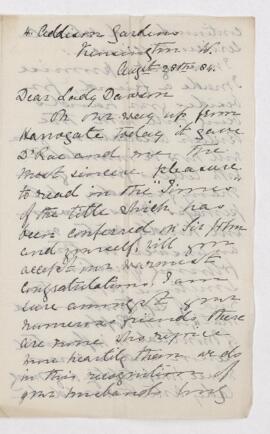 4 Addison Gardens
Kensington W.
Augst 28th 84.
Dear Lady Dawson
On our way up from
Harrogate today it gave
Dr Rae and me the
most sincere pleasure
to read in the "Times"
of the title which has
been conferred on Sir Wm
and yourself, will you
accept our warmest
congratulations, I am
sure amongst your
numerous friends there
are none who rejoice
more heartily than we do
in this recognition of
your husband's